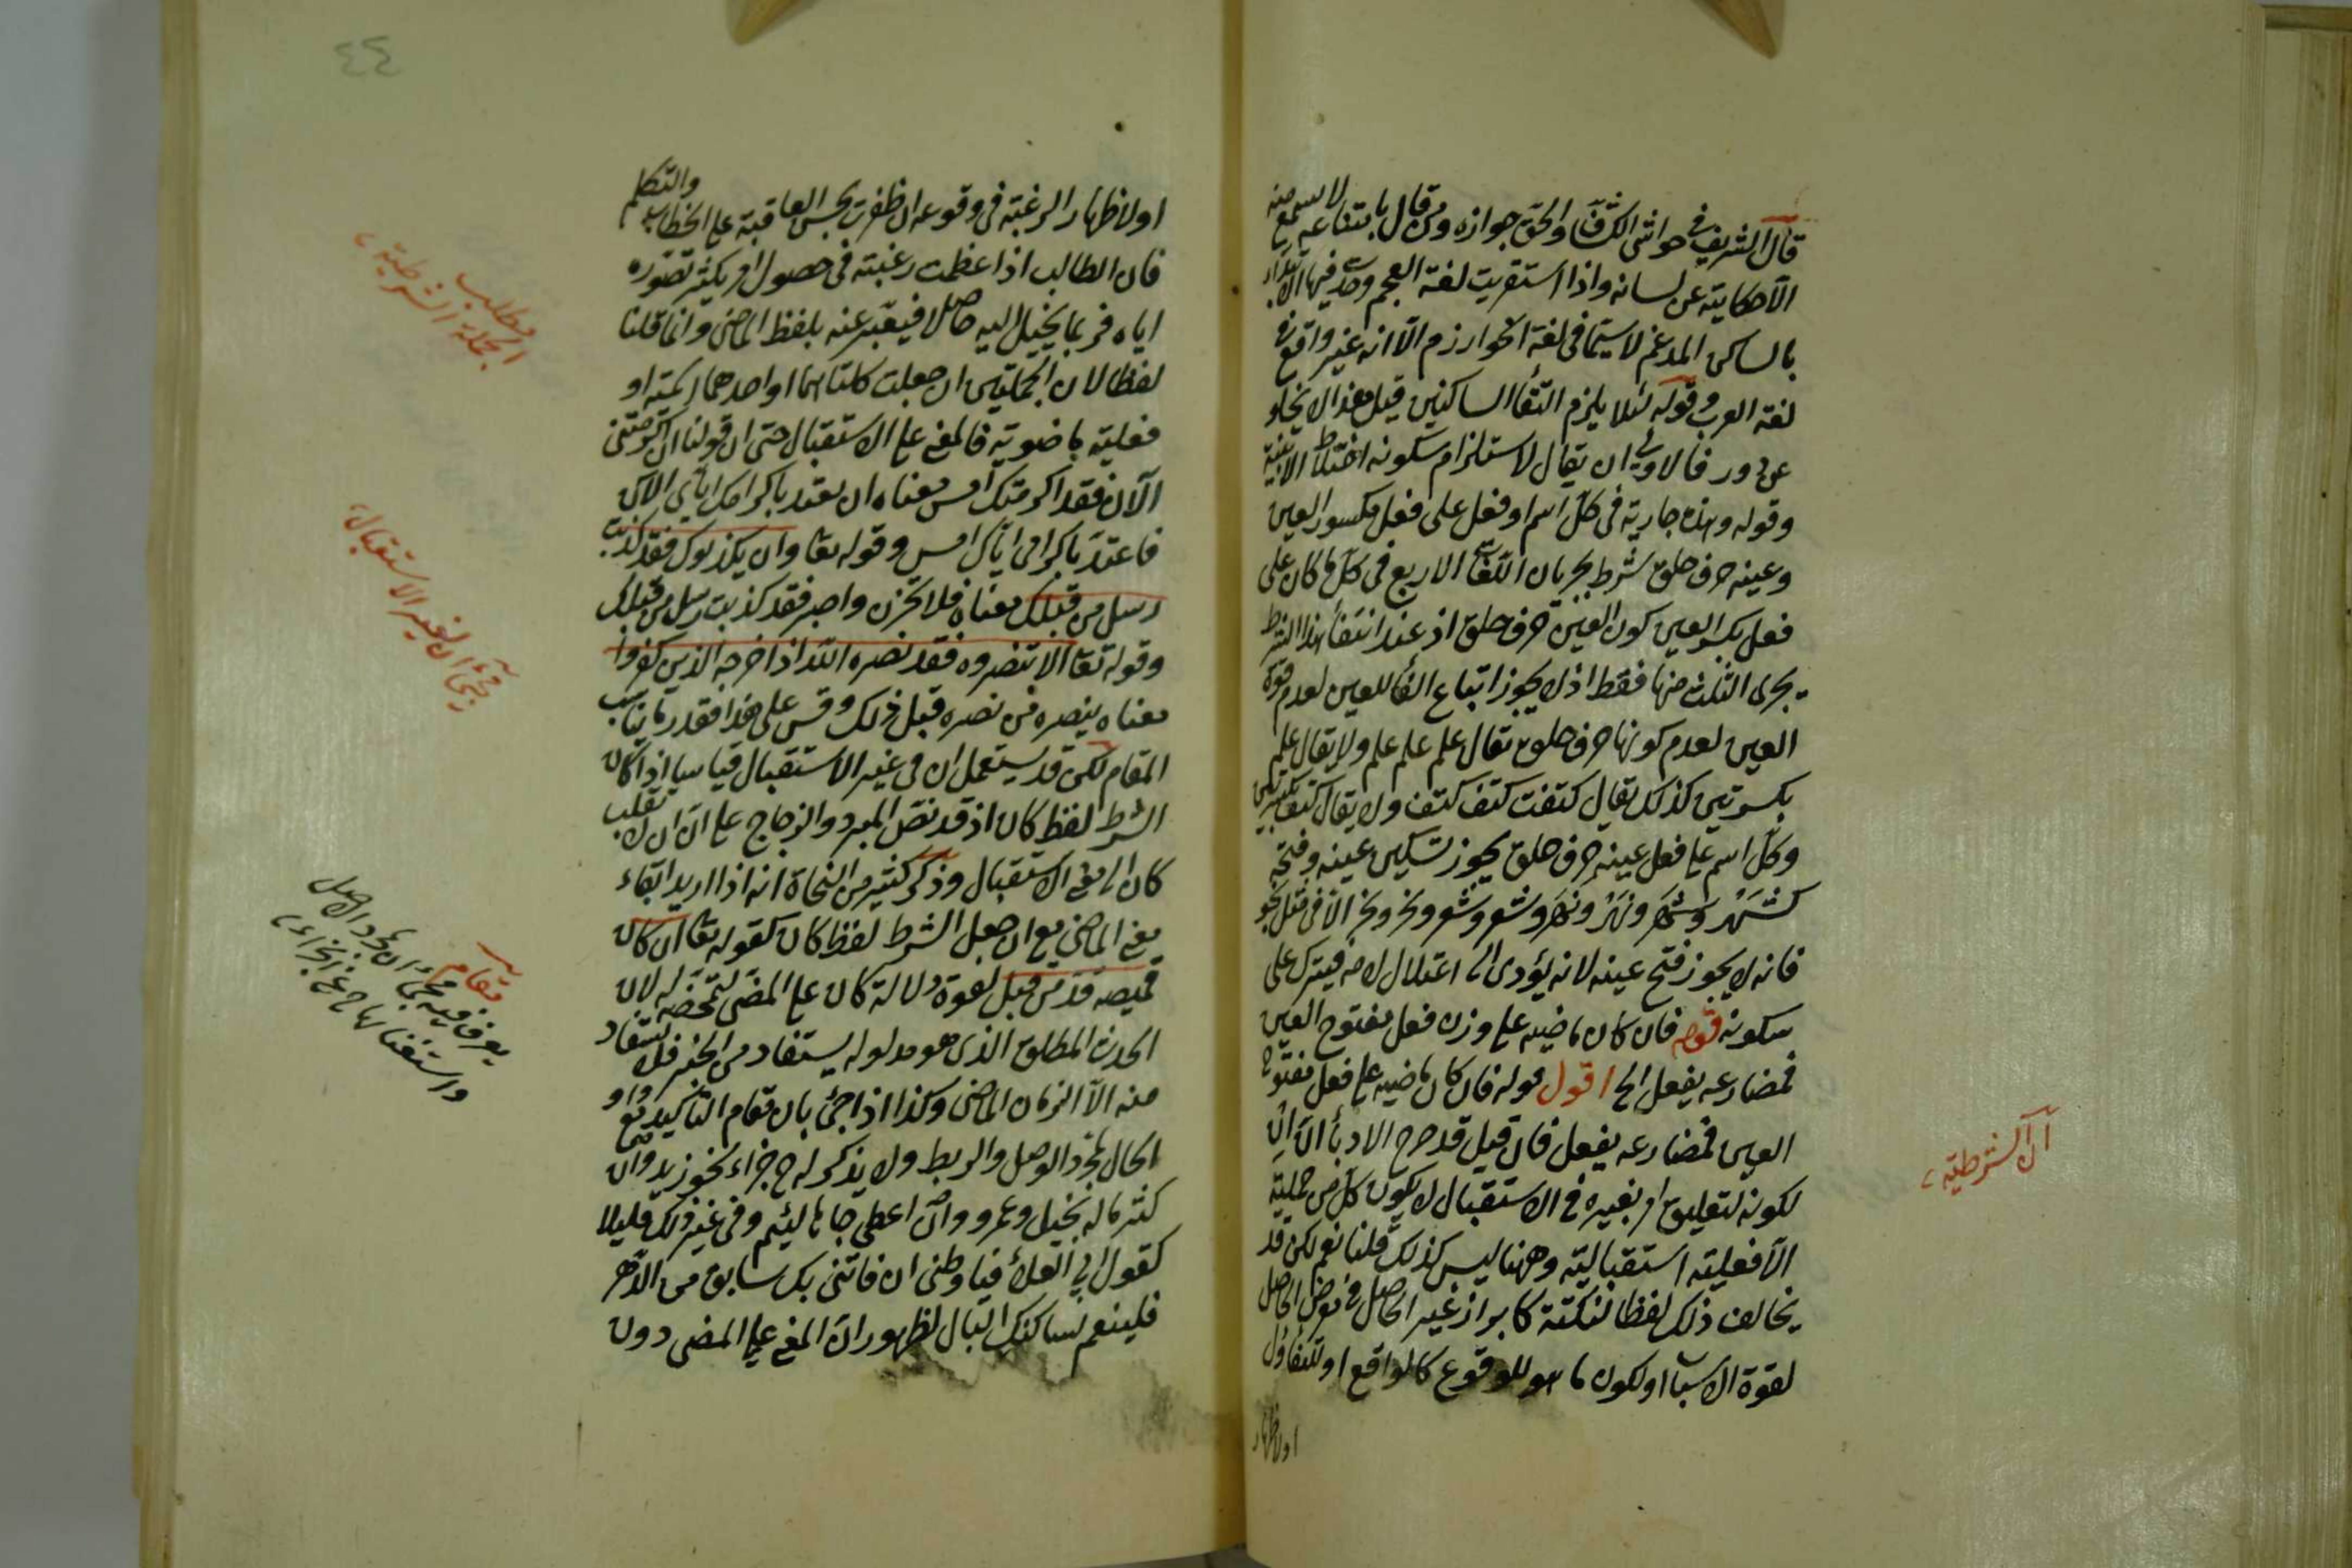 قال الشريف في حواشى الكشاف والحق جوازه ومن قال بامتناعه لا يسمع منه
الا حكايته عن لسانه واذا استقريت لغة العجم وجدت فيها الابتداء
بالساكن المدغم لا سيما في لغة الخوارزم الا انه غير واقع في
لغة العرب وقوله لئلا يلزم التقا الساكنين قيل هذا لا يخلو
عن دور فالاولى ان يقال لاستلزام سكونه اختلاط الابنية
وقوله وهذه جارية في كل اسم او فعل على فعل مكسور العين
وعينه حرف حلق شرط بجريان اللغات الاربع في كل ما كان على
فعل بكسر العين كون العين حرف حلق اذ عند انتفأ هذا الشرط
يجرى الثلث منها فقط اذ لا يجوز اتباع الفأ للعين لعدم قوة
العين لعدم كونها حرف حلق تقال علم علم علم ولا يقال علم
بكسرتين كذلك يقال كتفت كتف كتف ولا يقال كتف بكسرتين
وكل اسم على فعل عينه حرف حلق يجوز تسكين عينه وفتحه
كشهر وشهر ونهر ونهر وشعر وشعر ونحر ونحر الا في مثل نحو
فانه لا يجوز فتح عينه لانه يؤدى الى اعتلال لامه فيترك على
سكونه قوله فان كان ماضيه على وزن فعل مفتوح العين
فمضارعه يفعل الخ اقول قوله فان كان ماضيه على فعل مفتوح
العين فمضارعه يفعل فان قيل قد صرح الادبأ ان ان
لكونه لتعليق امر بغيره في الاستقبال لا يكون كل من جمليته
الا فعلية استقبالية وههنا ليس كذلك قلنا نعم لكن قد
يخالف ذلك لفظا لنكتة كابراز غير الحاصل في معرض الحاصل
لقوة الاسباب او لكون ما هو للوقوع كالواقع او للتفاؤل
او لاظهار
ان الشرطية
٤٤
او لاظهار الرغبة في وقوعه ان ظفرت بحسن العاقبة على الخطاب والتكلم
فان الطالب اذا عظمت رغبته في حصول امر يكثر تصوره
اياه فربما يخيل اليه حاصلا فيعبر عنه بلفظ الماضى وانما قلنا
لفظا لان الجملتين ان جعلت كلتاهما او احدهما اسمية او
فعلية ماضوية فالمعنى على الاستقبال حتى ان قولنا ان اكرمتنى
الآن فقد اكرمتك امس معناه ان تعتد باكرامك اياى الآن
فاعتد باكرامى اياك امس وقوله تعا وان يكذبوك فقد كذبت
رسل من قبلك معناه فلا تحزن واصبر فقد كذبت رسل من قبلك
وقوله تعا الا تنصروه فقد نصره الله اذ اخرجه الذين كفروا
معناه ينصره من نصره قبل ذلك وقس على هذا فقدر ما يناسب
المقام لكن قد يستعمل ان في غير الاستقبال قياسا اذا كان
الشرط لفظ كان اذ قد نص المبرد والزجاج على ان ان لا تقلب
كان الى معنى الاستقبال وذكر كثير من النحاة انه اذا اريد ابقاء
معنى الماضى مع ان جعل الشرط لفظ كان كقوله تعا ان كان
قميصه قد من قبل لقوة دلالة كان على المضى لتمحضه له لان
الحدث المطلق الذى هو مدلوله يستفاد من الخبر فلا يستفاد
منه الا الزمان الماضى وكذا اذا جئ بان مقام التأكيد مع واو
الحال لمجرد الوصل والربط ولا يذكر له ح جزاء نحو زيد وان
كثر ماله بخيل وعمرو وان اعطى جاها لئيم وفى غير ذلك قليلا
كقول ابى العلأ فيا وطنى ان فاتنى بك سابق من الدهر
فلينعم لساكنك البال لظهور ان المعنى على المضى دون
مطلب
الجملة الشرطية
مجئ ان لغير الاستقبال
مقام
يعرف فيه مجئ ان لمجرد الوصل
واستغنائها ح عن الجزاء